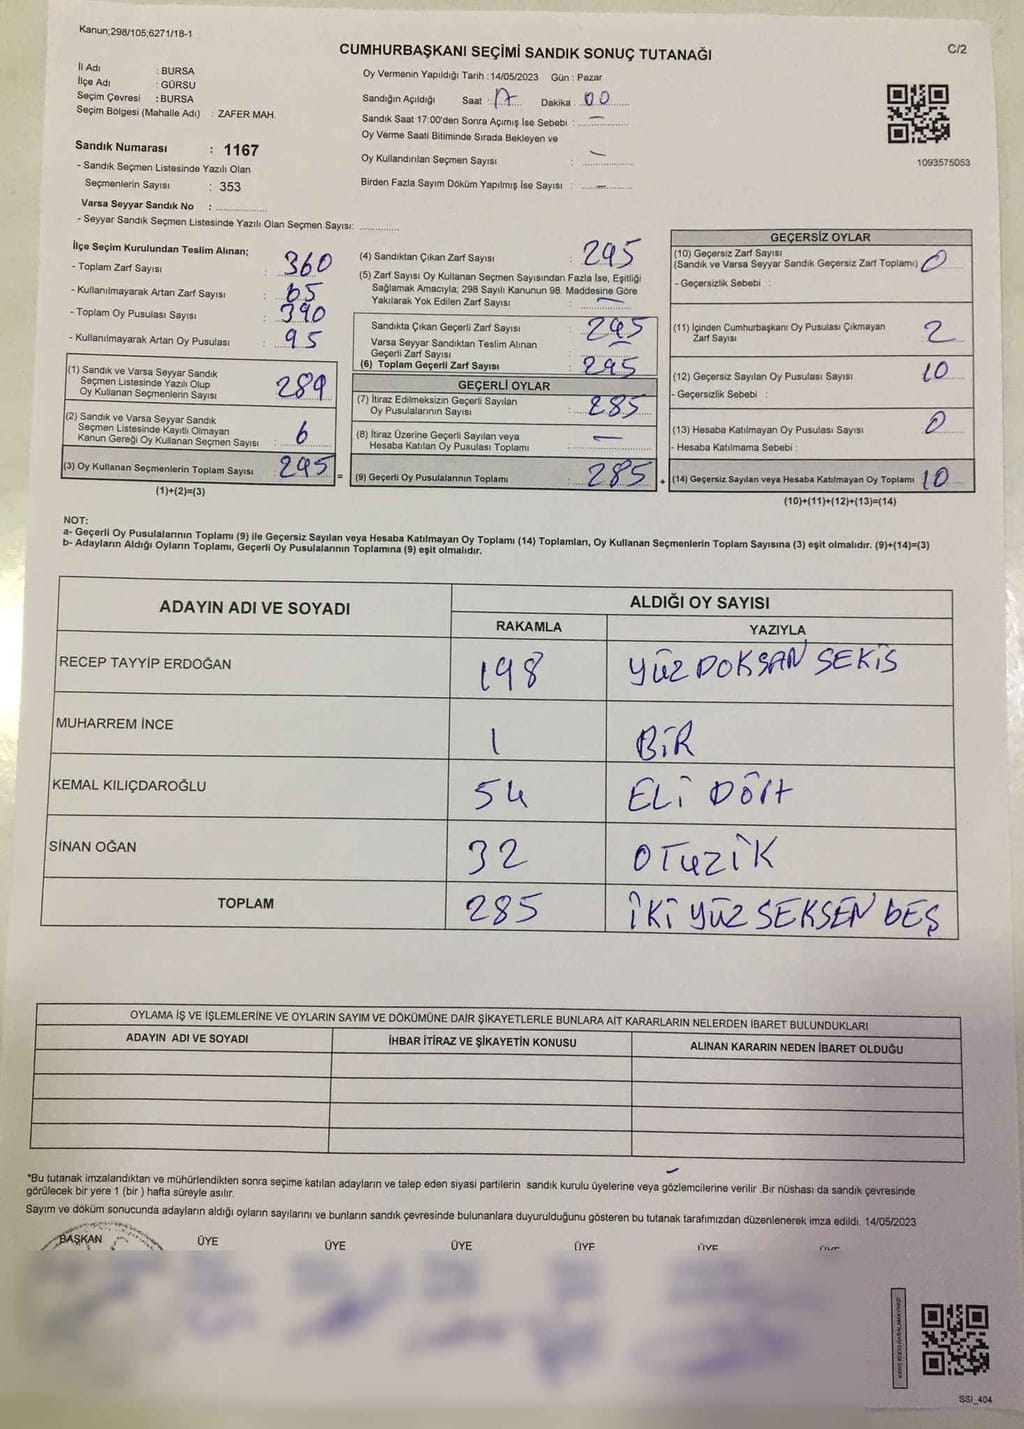 Kanun;298/105;6271/18-1
CUMHURBAŞKANI SEÇİMİ SANDIK SONUÇ TUTANAĞI
C/2
İl Adı : BURSA
İlçe Adı : GÜRSU
Seçim Çevresi : BURSA
Seçim Bölgesi (Mahalle Adı) : ZAFER MAH.
Sandık Numarası : 1167
- Sandık Seçmen Listesinde Yazılı Olan
Seçmenlerin Sayısı : 353
Varsa Seyyar Sandık No : ..................
- Seyyar Sandık Seçmen Listesinde Yazılı Olan Seçmen Sayısı: ..............
Oy Vermenin Yapıldığı Tarih : 14/05/2023 Gün : Pazar
Sandığın Açıldığı Saat : 17 Dakika : 00
Sandık Saat 17:00'den Sonra Açımış İse Sebebi : —
Oy Verme Saati Bitiminde Sırada Bekleyen ve
Oy Kullandırılan Seçmen Sayısı : —
Birden Fazla Sayım Döküm Yapılmış İse Sayısı : —
1093575053
İlçe Seçim Kurulundan Teslim Alınan;
- Toplam Zarf Sayısı : 360
- Kullanılmayarak Artan Zarf Sayısı : 65
- Toplam Oy Pusulası Sayısı : 390
- Kullanılmayarak Artan Oy Pusulası : 95
(1) Sandık ve Varsa Seyyar Sandık
Seçmen Listesinde Yazılı Olup
Oy Kullanan Seçmenlerin Sayısı : 289
(2) Sandık ve Varsa Seyyar Sandık
Seçmen Listesinde Kayıtlı Olmayan
Kanun Gereği Oy Kullanan Seçmen Sayısı : 6
(3) Oy Kullanan Seçmenlerin Toplam Sayısı : 295 =
(1)+(2)=(3)
(4) Sandıktan Çıkan Zarf Sayısı : 295
(5) Zarf Sayısı Oy Kullanan Seçmen Sayısından Fazla İse, Eşitliği
Sağlamak Amacıyla; 298 Sayılı Kanunun 98. Maddesine Göre
Yakılarak Yok Edilen Zarf Sayısı : —
Sandıkta Çıkan Geçerli Zarf Sayısı : 295
Varsa Seyyar Sandıktan Teslim Alınan
Geçerli Zarf Sayısı : —
(6) Toplam Geçerli Zarf Sayısı : 295
GEÇERLİ OYLAR
(7) İtiraz Edilmeksizin Geçerli Sayılan
Oy Pusulalarının Sayısı : 285
(8) İtiraz Üzerine Geçerli Sayılan veya
Hesaba Katılan Oy Pusulası Toplamı : —
(9) Geçerli Oy Pusulalarının Toplamı : 285 +
GEÇERSİZ OYLAR
(10) Geçersiz Zarf Sayısı
(Sandık ve Varsa Seyyar Sandık Geçersiz Zarf Toplamı) : 0
- Geçersizlik Sebebi :
(11) İçinden Cumhurbaşkanı Oy Pusulası Çıkmayan
Zarf Sayısı : 2
(12) Geçersiz Sayılan Oy Pusulası Sayısı : 10
- Geçersizlik Sebebi :
(13) Hesaba Katılmayan Oy Pusulası Sayısı : 0
- Hesaba Katılmama Sebebi :
(14) Geçersiz Sayılan veya Hesaba Katılmayan Oy Toplamı : 10
(10)+(11)+(12)+(13)=(14)
NOT:
a- Geçerli Oy Pusulalarının Toplamı (9) ile Geçersiz Sayılan veya Hesaba Katılmayan Oy Toplamı (14) Toplamları, Oy Kullanan Seçmenlerin Toplam Sayısına (3) eşit olmalıdır. (9)+(14)=(3)
b- Adayların Aldığı Oyların Toplamı, Geçerli Oy Pusulalarının Toplamına (9) eşit olmalıdır.
ADAYIN ADI VE SOYADI
ALDIĞI OY SAYISI
RAKAMLA YAZIYLA
RECEP TAYYİP ERDOĞAN 198 YÜZ DOKSAN SEKİS
MUHARREM İNCE 1 BİR
KEMAL KILIÇDAROĞLU 54 ELİ DÖRt
SİNAN OĞAN 32 OTUZİK
TOPLAM 285 İKİ YÜZ SEKSEN bEŞ
OYLAMA İŞ VE İŞLEMLERİNE VE OYLARIN SAYIM VE DÖKÜMÜNE DAİR ŞİKAYETLERLE BUNLARA AİT KARARLARIN NELERDEN İBARET BULUNDUKLARI
ADAYIN ADI VE SOYADI İHBAR İTİRAZ VE ŞİKAYETİN KONUSU ALINAN KARARIN NEDEN İBARET OLDUĞU
*Bu tutanak imzalandıktan ve mühürlendikten sonra seçime katılan adayların ve talep eden siyasi partilerin sandık kurulu üyelerine veya gözlemcilerine verilir .Bir nüshası da sandık çevresinde
görülecek bir yere 1 (bir ) hafta süreyle asılır.
Sayım ve döküm sonucunda adayların aldığı oyların sayılarını ve bunların sandık çevresinde bulunanlara duyurulduğunu gösteren bu tutanak tarafımızdan düzenlenerek imza edildi. 14/05/2023
BAŞKAN ÜYE ÜYE ÜYE ÜYE ÜYE
SSI_404